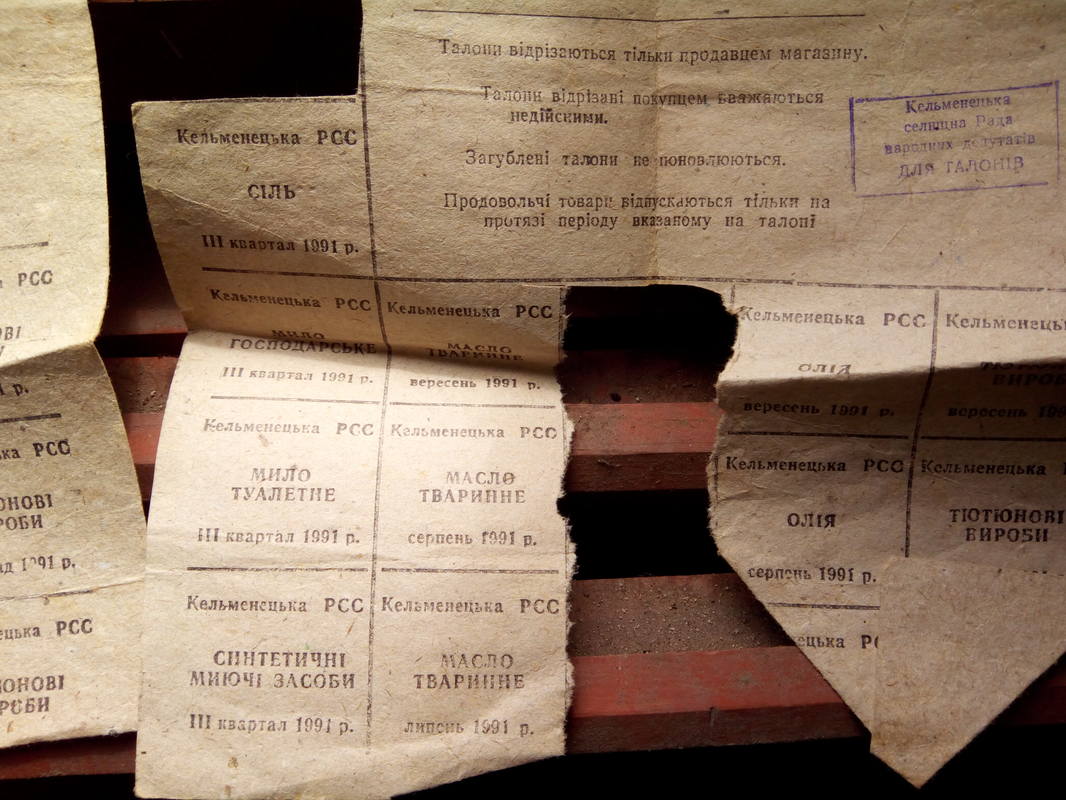 Талони відрізаються тільки продавцем магазину.
Талони відрізані покупцем вважаються
недійсними.
Загублені талони не поновлюються.
Продовольчі товари відпускаються тільки на
протязі періоду вказаному на талоні
Кельменецька
селищна Рада
народних депутатів
ДЛЯ ТАЛОНІВ
Кельменецька РСС
СІЛЬ
III квартал 1991 р.
Кельменецька РСС
МИЛО
ГОСПОДАРСЬКЕ
III квартал 1991 р.
Кельменецька РСС
МАСЛО
ТВАРИННЕ
вересень 1991 р.
Кельменецька РСС
ОЛІЯ
вересень 1991 р.
Кельменець
ТЮТЮНО
ВИРОБ
вересень 199
Кельменецька РСС
МИЛО
ТУАЛЕТНЕ
III квартал 1991 р.
Кельменецька РСС
МАСЛО
ТВАРИННЕ
серпень 1991 р.
Кельменецька РСС
ОЛІЯ
серпень 1991 р.
Кельменецька Р
ТЮТЮНОВІ
ВИРОБИ
Кельменецька РСС
СИНТЕТИЧНІ
МИЮЧІ ЗАСОБИ
III квартал 1991 р.
Кельменецька РСС
МАСЛО
ТВАРИННЕ
липень 1991 р.
ецька Р
РСС
ОВІ
р.
ька РСС
ОНОВІ
РОБИ
ад 1991 р.
ецька РСС
ОНОВІ
РОБИ